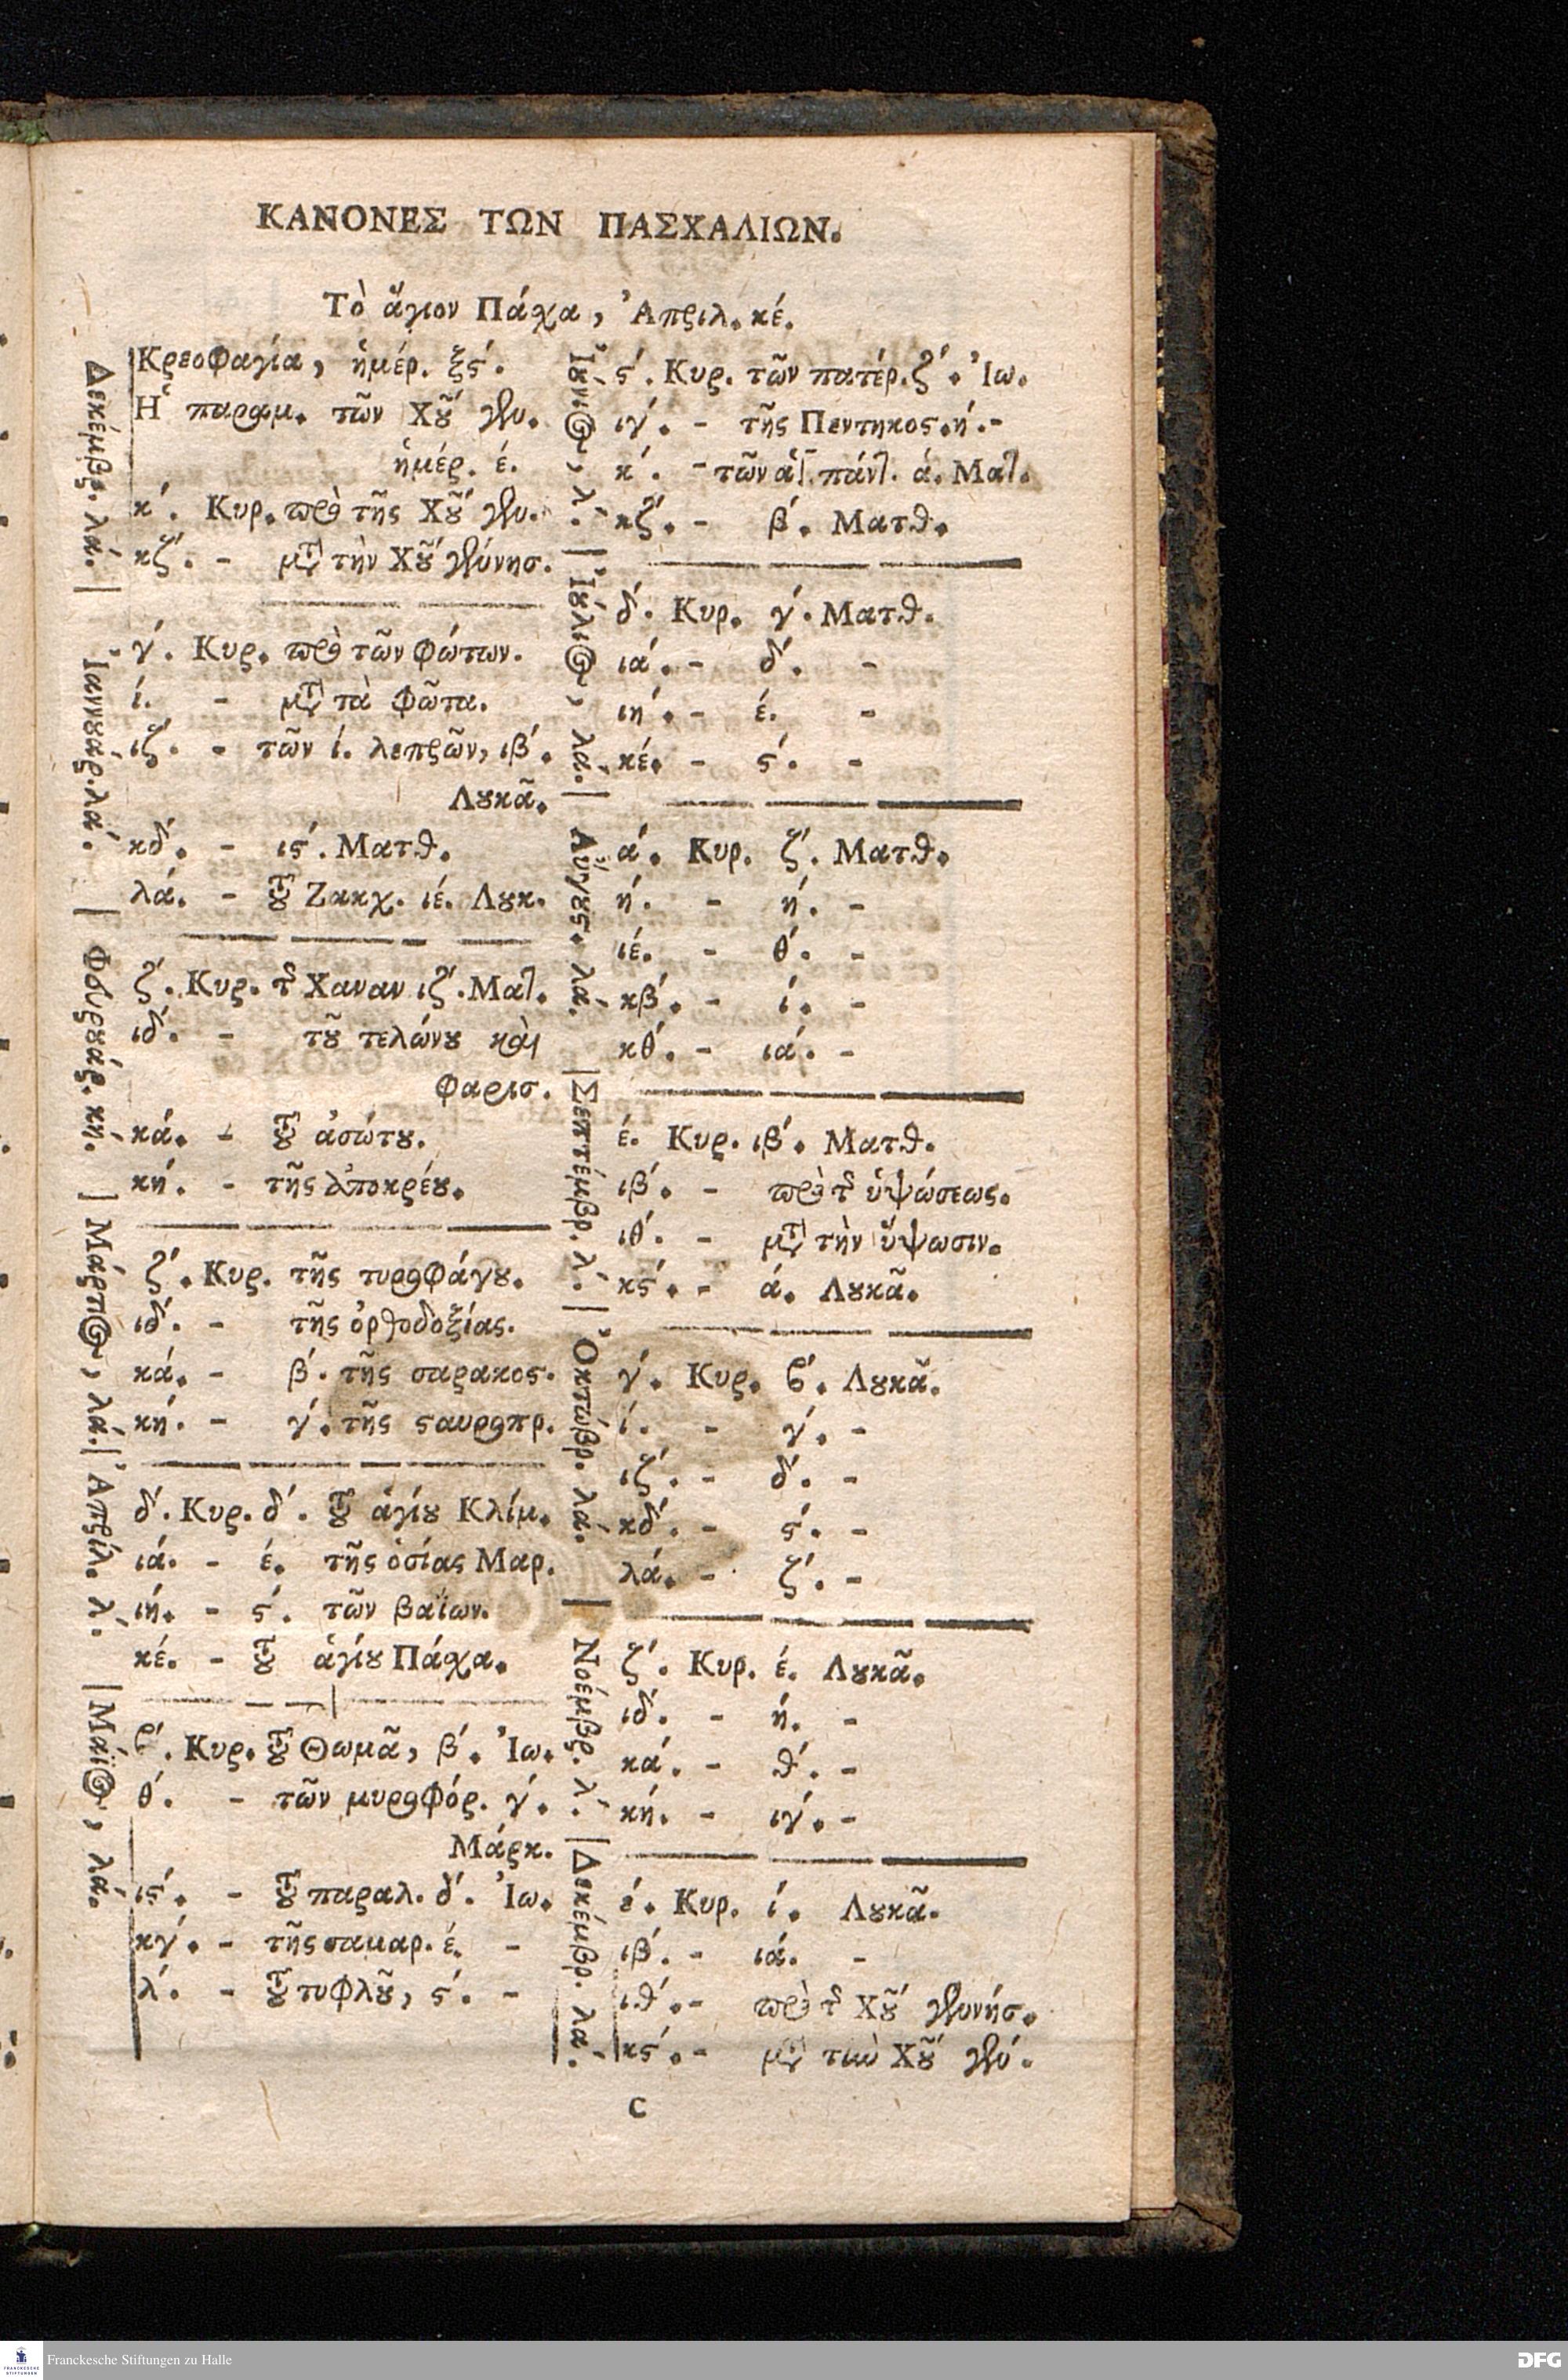 ΚΑΝΟΝΕΣ ΤΩΝ ΠΑΣΧΑΛΙΩΝ.
Τὸ ἅγιον Πάχα, Ἀπριλ. κέ.
Δεκέμβρ. λά.
Κρεοφαγία, ἡμέρ. ξϛ΄.
Ἡ παραμ. τῶν Χῦ γλυ.
ἡμέρ. έ.
κ΄. Κυρ. πρὸ τῆς Χȣ͂ γεν.
κζ΄. - μτ τὴν Χȣ͂ γέννησ.
Ἰαννȣάρ. λά.
γ΄. Κυρ. πρὸ τῶν Φώτων.
ί. - μτ τὰ Φῶτα.
ιζ΄. - τῶν ί. λεπρῶν, ιβ΄.
Λȣκᾶ.
κδ΄. - ιϛ΄. Ματθ.
λά. - τȣ͂ Ζακχ. ιέ. Λȣκ.
Φευρȣάρ. κή.
ζ΄. Κυρ. τ͂ Χαναν ιζ΄. Ματ.
ιδ΄. - τȣ͂ τελώνȣ καὶ
Φαρισ.
κά. - τȣ͂ ἀσώτȣ.
κή. - τῆς ἀποκρέȣ.
Μάρτιος, λά.
ζ΄. Κυρ. τῆς τυροφάγȣ.
ιδ΄. - τῆς ὀρθοδοξίας.
κά. - β΄. τῆς σαρακοϛ.
κή. - γ΄. τῆς ϛαυροπρ.
Ἀπρίλ. λ΄.
δ΄. Κυρ. δ΄. τȣ͂ ἁγίȣ Κλίμ.
ιά. - έ. τῆς ὁσίας Μαρ.
ιή. - ϛ΄. τῶν βαΐων.
κέ. - τȣ͂ ἁγίȣ Πάχα.
Μάϊος, λά.
β΄. Κυρ. τȣ͂ Θωμᾶ, β΄. Ἰω.
θ΄. - τῶν μυροφόρ. γ΄.
Μάρκ.
ιϛ΄. - τȣ͂ παραλ. δ΄. Ἰω.
κγ΄. - τῆς σαμαρ. έ. -
λ΄. - τȣ͂ τυφλȣ͂, ϛ΄. -
Ἰȣ́νιος, λ΄.
ϛ΄. Κυρ. τῶν πατέρ. ζ΄. Ἰω.
ιγ΄. - τῆς Πεντηκοϛ. ή. -
κ΄. - τῶν ἁγ. πάντ. ά. Ματ.
κζ΄. - β΄. Ματθ.
Ἰȣ́λιος, λά.
δ΄. Κυρ. γ΄. Ματθ.
ιά. - δ΄. -
ιη΄. - έ. -
κέ. - ϛ΄. -
Αὔγȣϛ. λά.
ά. Κυρ. ζ΄. Ματθ.
ή. - ή. -
ιέ. - θ΄. -
κβ΄. - ί. -
κθ΄. - ιά. -
Σεπτέμβρ. λ΄.
έ. Κυρ. ιβ΄. Ματθ.
ιβ΄. - πρὸ τ͂ ὑψώσεως.
ιθ΄. - μτ τὴν ὕψωσιν.
κϛ΄. - ά. Λȣκᾶ.
Ὀκτώβρ. λά.
γ΄. Κυρ. β΄. Λȣκᾶ.
ί. - γ΄. -
ιζ΄. - δ΄. -
κδ΄. - ϛ΄. -
λά. - ζ΄. -
Νοέμβρ. λ΄.
ζ΄. Κυρ. έ. Λȣκᾶ.
ιδ΄. - ή. -
κά. - θ΄. -
κή. - ιγ΄. -
Δεκέμβρ. λά.
έ. Κυρ. ί. Λȣκᾶ.
ιβ΄. - ιά. -
ιθ΄. - πρὸ τ͂ Χȣ͂ γεννήσ.
κϛ΄. - μτ τὴν Χȣ͂ γέν.
C
Franckesche Stiftungen zu Halle
DFG